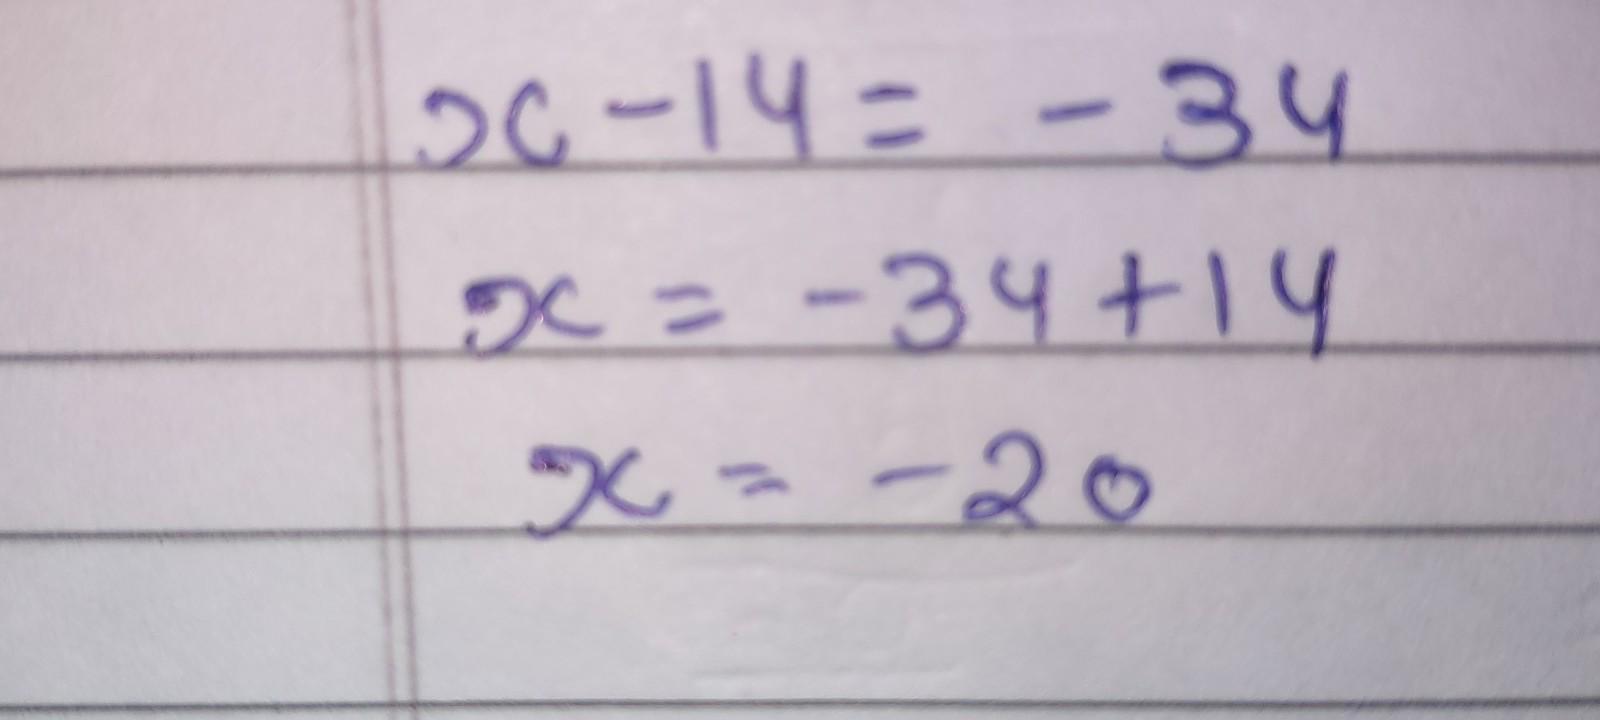 x - 14 = - 34
x = - 34 + 14
x = - 20